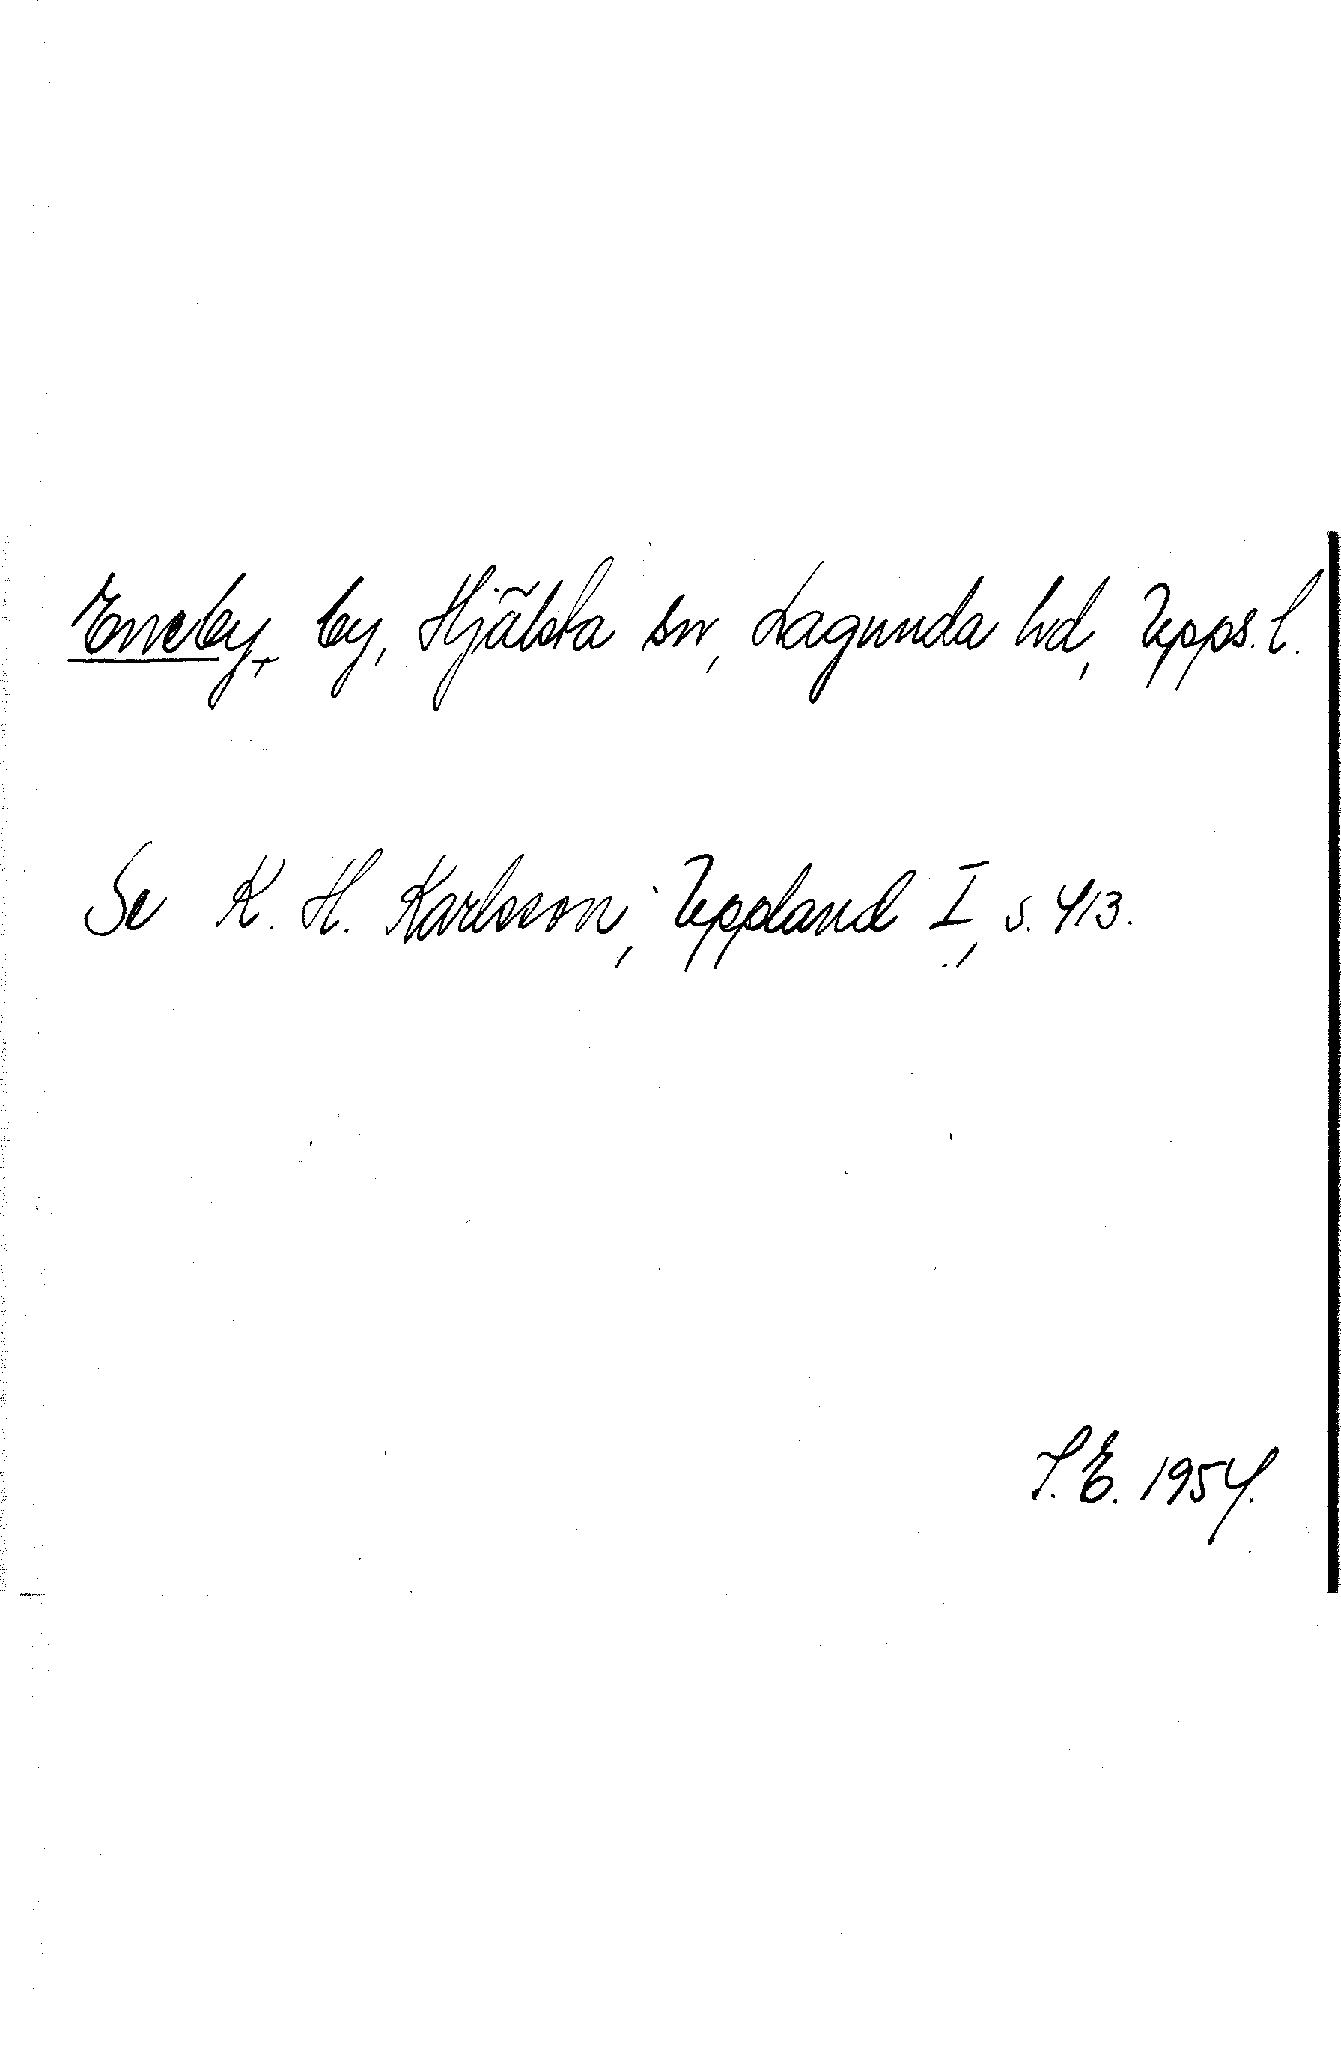 Eneby, by, Hjälsta sn, Lagunda hd, Upps. l.
Se K. H. Karlsson, Uppland I, s. 413.
S. E. 1954.